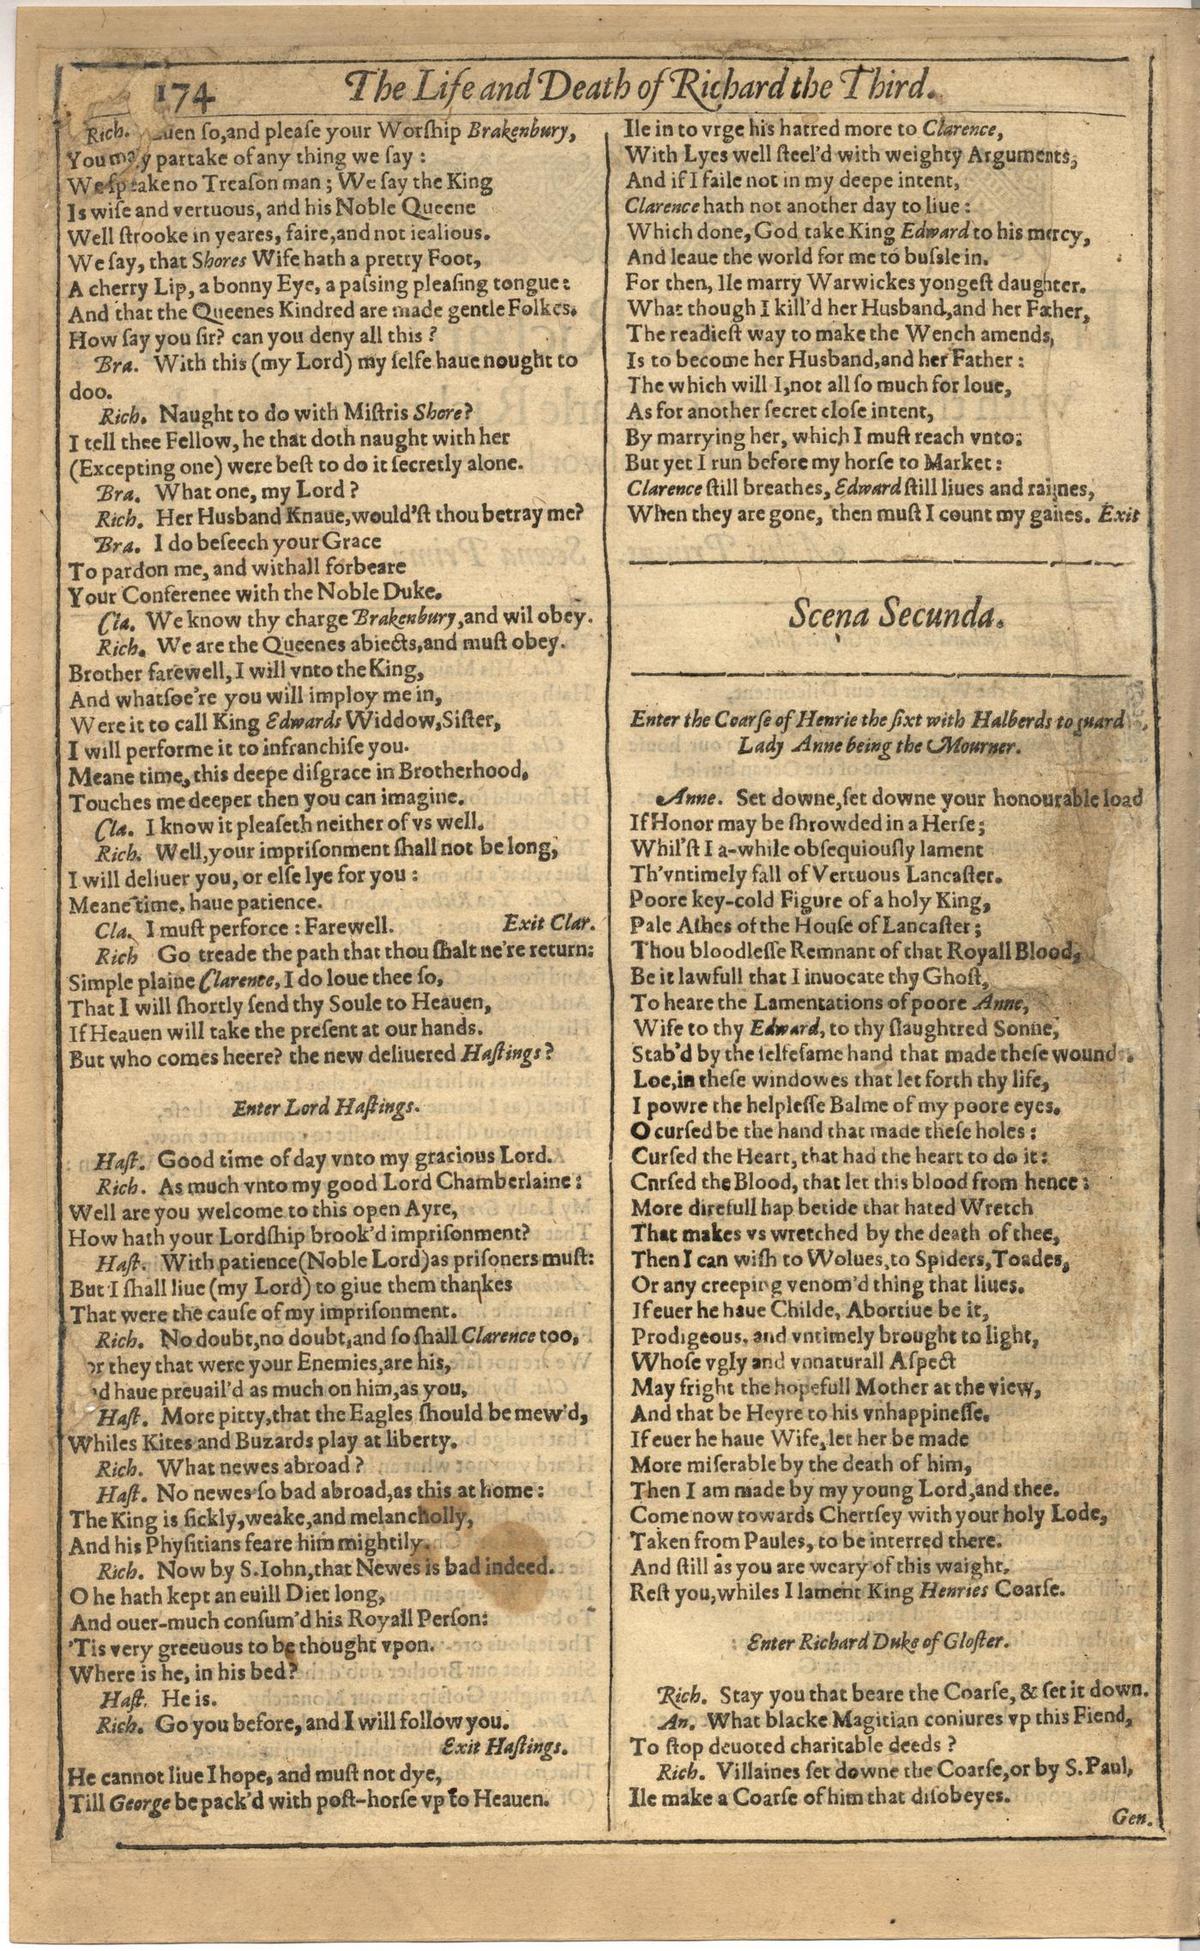 174 The Life and Death of Richard the Third.
Rich. so, and pleaſe your Worſhip Brakenbury,
You may partake of any thing we ſay:
We ſpeake no Treaſon man; We ſay the King
Is wiſe and vertuous, and his Noble Queene
Well ſtrooke in yeares, faire, and not iealious.
We ſay, that Shores Wife hath a pretty Foot,
A cherry Lip, a bonny Eye, a paſsing pleaſing tongue:
And that the Queenes Kindred are made gentle Folkes.
How ſay you ſir? can you deny all this?
Bra. With this (my Lord) my ſelfe haue nought to
doo.
Rich. Naught to do with Miſtris Shore?
I tell thee Fellow, he that doth naught with her
(Excepting one) were beſt to do it ſecretly alone.
Bra. What one, my Lord?
Rich. Her Husband Knaue, would'ſt thou betray me?
Bra. I do beſeech your Grace
To pardon me, and withall forbeare
Your Conference with the Noble Duke.
Cla. We know thy charge Brakenbury, and wil obey.
Rich. We are the Queenes abiects, and muſt obey.
Brother farewell, I will vnto the King,
And whatſoe're you will imploy me in,
Were it to call King Edwards Widdow, Siſter,
I will performe it to infranchiſe you.
Meane time, this deepe diſgrace in Brotherhood,
Touches me deeper then you can imagine.
Cla. I know it pleaſeth neither of vs well.
Rich. Well, your impriſonment ſhall not be long,
I will deliuer you, or elſe lye for you:
Meane time, haue patience.
Cla. I muſt perforce: Farewell. Exit Clar.
Rich Go treade the path that thou ſhalt ne're return:
Simple plaine Clarence, I do loue thee ſo,
That I will ſhortly ſend thy Soule to Heauen,
If Heauen will take the preſent at our hands.
But who comes heere? the new deliuered Haſtings?
Enter Lord Haſtings.
Haſt. Good time of day vnto my gracious Lord.
Rich. As much vnto my good Lord Chamberlaine:
Well are you welcome to this open Ayre,
How hath your Lordſhip brook'd impriſonment?
Haſt. With patience (Noble Lord) as priſoners muſt:
But I ſhall liue (my Lord) to giue them thankes
That were the cauſe of my impriſonment.
Rich. No doubt, no doubt, and ſo ſhall Clarence too,
or they that were your Enemies, are his,
'd haue preuail'd as much on him, as you,
Haſt. More pitty, that the Eagles ſhould be mew'd,
Whiles Kites and Buzards play at liberty.
Rich. What newes abroad?
Haſt. No newes ſo bad abroad, as this at home:
The King is ſickly, weake, and melancholly,
And his Phyſitians feare him mightily.
Rich. Now by S. Iohn, that Newes is bad indeed.
O he hath kept an euill Diet long,
And ouer-much conſum'd his Royall Perſon:
'Tis very greeuous to be thought vpon.
Where is he, in his bed?
Haſt. He is.
Rich. Go you before, and I will follow you.
Exit Haſtings.
He cannot liue I hope, and muſt not dye,
Till George be pack'd with poſt-horſe vp to Heauen.
Ile in to vrge his hatred more to Clarence,
With Lyes well ſteel'd with weighty Arguments,
And if I faile not in my deepe intent,
Clarence hath not another day to liue:
Which done, God take King Edward to his mercy,
And leaue the world for me to buſsle in.
For then, Ile marry Warwickes yongeſt daughter.
What though I kill'd her Husband, and her Father,
The readieſt way to make the Wench amends,
Is to become her Husband, and her Father:
The which will I, not all ſo much for loue,
As for another ſecret cloſe intent,
By marrying her, which I muſt reach vnto.
But yet I run before my horſe to Market:
Clarence ſtill breathes, Edward ſtill liues and raignes,
When they are gone, then muſt I count my gaines. Exit
Scena Secunda.
Enter the Coarſe of Henrie the ſixt with Halberds to guard
Lady Anne being the Mourner.
Anne. Set downe, ſet downe your honourable load
If Honor may be ſhrowded in a Herſe;
Whil'ſt I a-while obſequiouſly lament
Th'vntimely fall of Vertuous Lancaſter.
Poore key-cold Figure of a holy King,
Pale Aſhes of the Houſe of Lancaſter;
Thou bloodleſſe Remnant of that Royall Blood,
Be it lawfull that I inuocate thy Ghoſt,
To heare the Lamentations of poore Anne,
Wife to thy Edward, to thy ſlaughtred Sonne,
Stab'd by the ſelfeſame hand that made theſe wound.
Loe, in theſe windowes that let forth thy life,
I powre the helpleſſe Balme of my poore eyes.
O curſed be the hand that made theſe holes:
Curſed the Heart, that had the heart to do it:
Curſed the Blood, that let this blood from hence:
More direfull hap betide that hated Wretch
That makes vs wretched by the death of thee,
Then I can wiſh to Wolues, to Spiders, Toades,
Or any creeping venom'd thing that liues.
If euer he haue Childe, Abortiue be it,
Prodigeous, and vntimely brought to light,
Whoſe vgly and vnnaturall Aſpect
May fright the hopefull Mother at the view,
And that be Heyre to his vnhappineſſe.
If euer he haue Wife, let her be made
More miſerable by the death of him,
Then I am made by my young Lord, and thee.
Come now towards Chertſey with your holy Lode,
Taken from Paules, to be interred there.
And ſtill as you are weary of this waight,
Reſt you, whiles I lament King Henries Coarſe.
Enter Richard Duke of Gloſter.
Rich. Stay you that beare the Coarſe, & ſet it down.
An. What blacke Magitian coniures vp this Fiend,
To ſtop deuoted charitable deeds?
Rich. Villaines ſet downe the Coarſe, or by S. Paul,
Ile make a Coarſe of him that diſobeyes.
Gen.